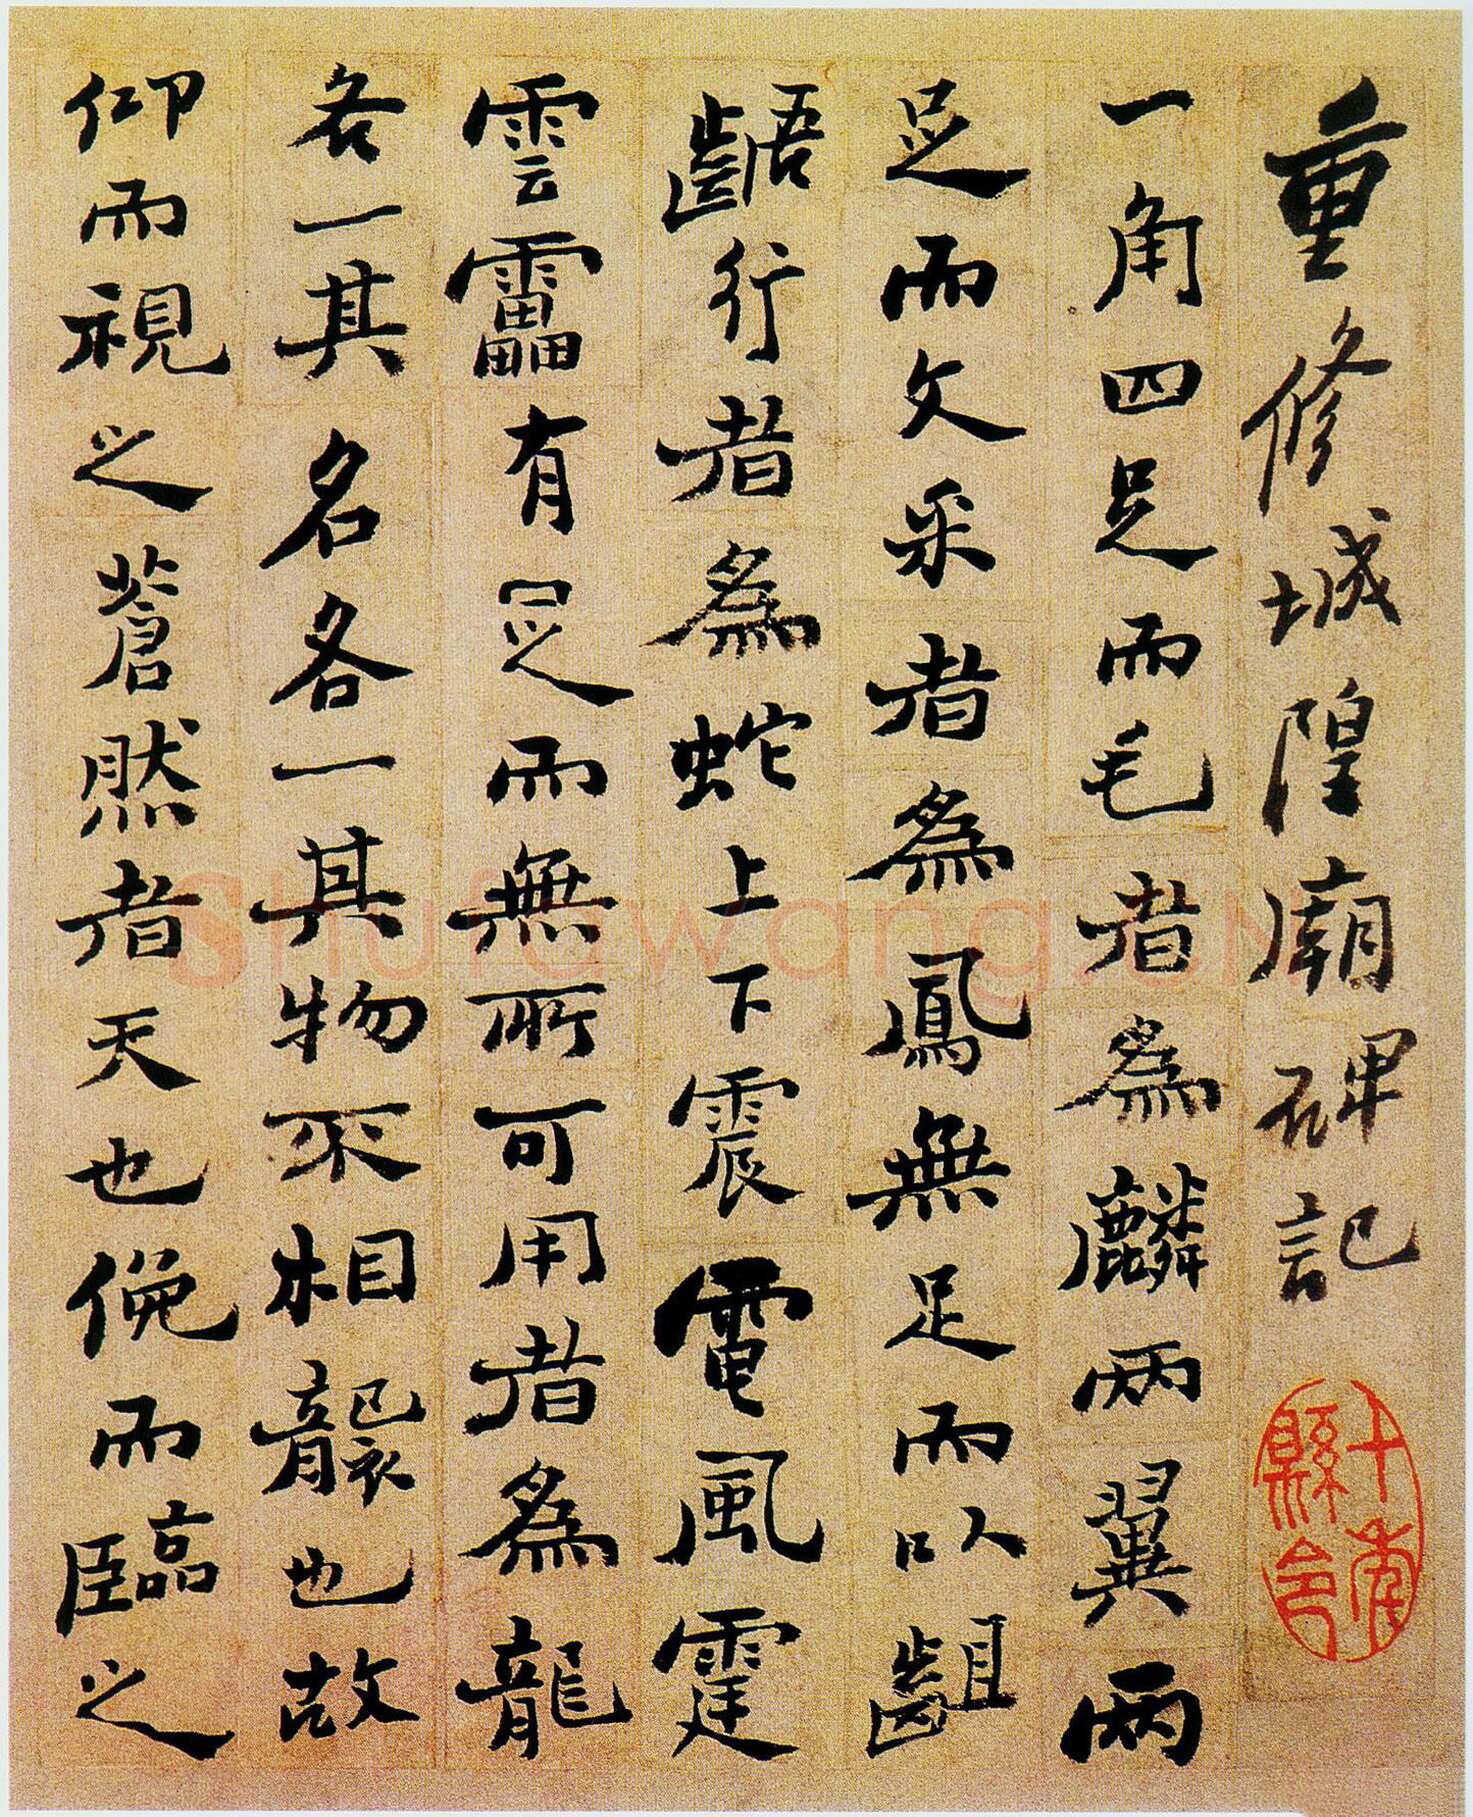 重修城隍廟碑記
十年縣令
一角四足而毛者為麟兩翼兩
足而文采者為鳳無足而以齟
齬行者為蛇上下震電風霆
雲靁有足而無所可用者為龍
各一其名各一其物不相襲也故
仰而視之蒼然者天也俛而臨之
Shufawang.CN